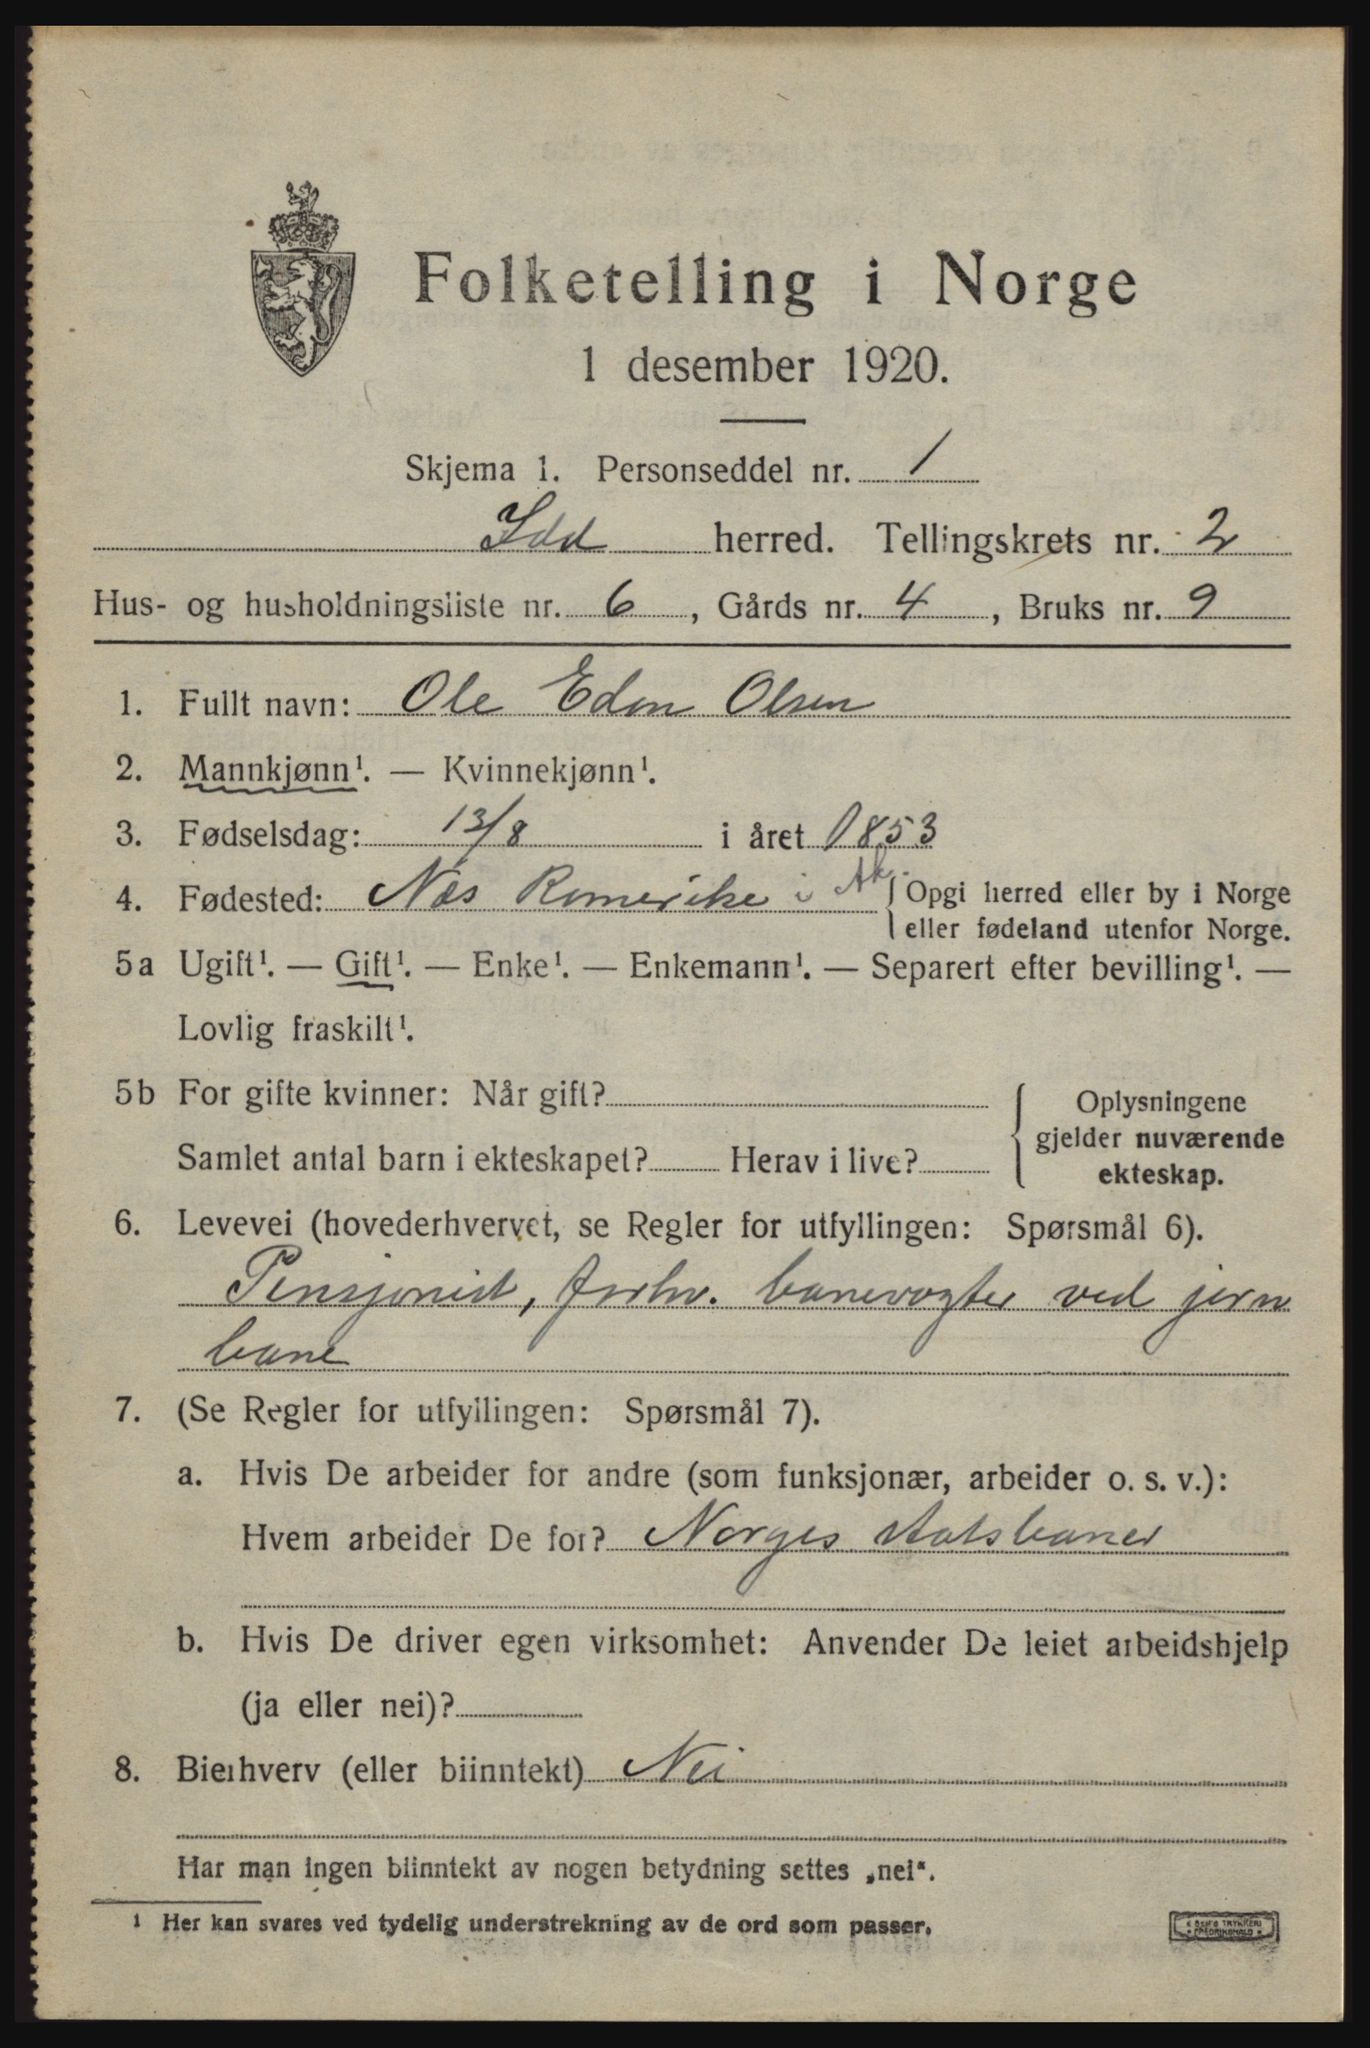 Folketelling i Norge
1 desember 1920.
Skjema 1. Personseddel nr. 1
Idd herred. Tellingskrets nr. 2
Hus- og husholdningsliste nr. 6, Gårds nr. 4, Bruks nr. 9
1. Fullt navn: Ole Edon Olsen
2. Mannkjønn¹. — Kvinnekjønn¹.
3. Fødselsdag: 13/8 i året 1853
4. Fødested: Næs Romerike i Ak. Opgi herred eller by i Norge
eller fødeland utenfor Norge.
5a Ugift¹. — Gift¹. — Enke¹. — Enkemann¹. — Separert efter bevilling¹. —
Lovlig fraskilt¹.
5b For gifte kvinner: Når gift?
Samlet antal barn i ekteskapet? Herav i live?
Oplysningene
gjelder nuværende
ekteskap.
6. Levevei (hovederhvervet, se Regler for utfyllingen: Spørsmål 6).
Pensjonist, forhv. banevogter ved jern
bane
7. (Se Regler for utfyllingen: Spørsmål 7).
a. Hvis De arbeider for andre (som funksjonær, arbeider o. s. v.):
Hvem arbeider De for? Norges statsbaner
b. Hvis De driver egen virksomhet: Anvender De leiet arbeidshjelp
(ja eller nei)?
8. Bierhverv (eller biinntekt) Nei
Har man ingen biinntekt av nogen betydning settes „nei“.
¹ Her kan svares ved tydelig understrekning av de ord som passer.